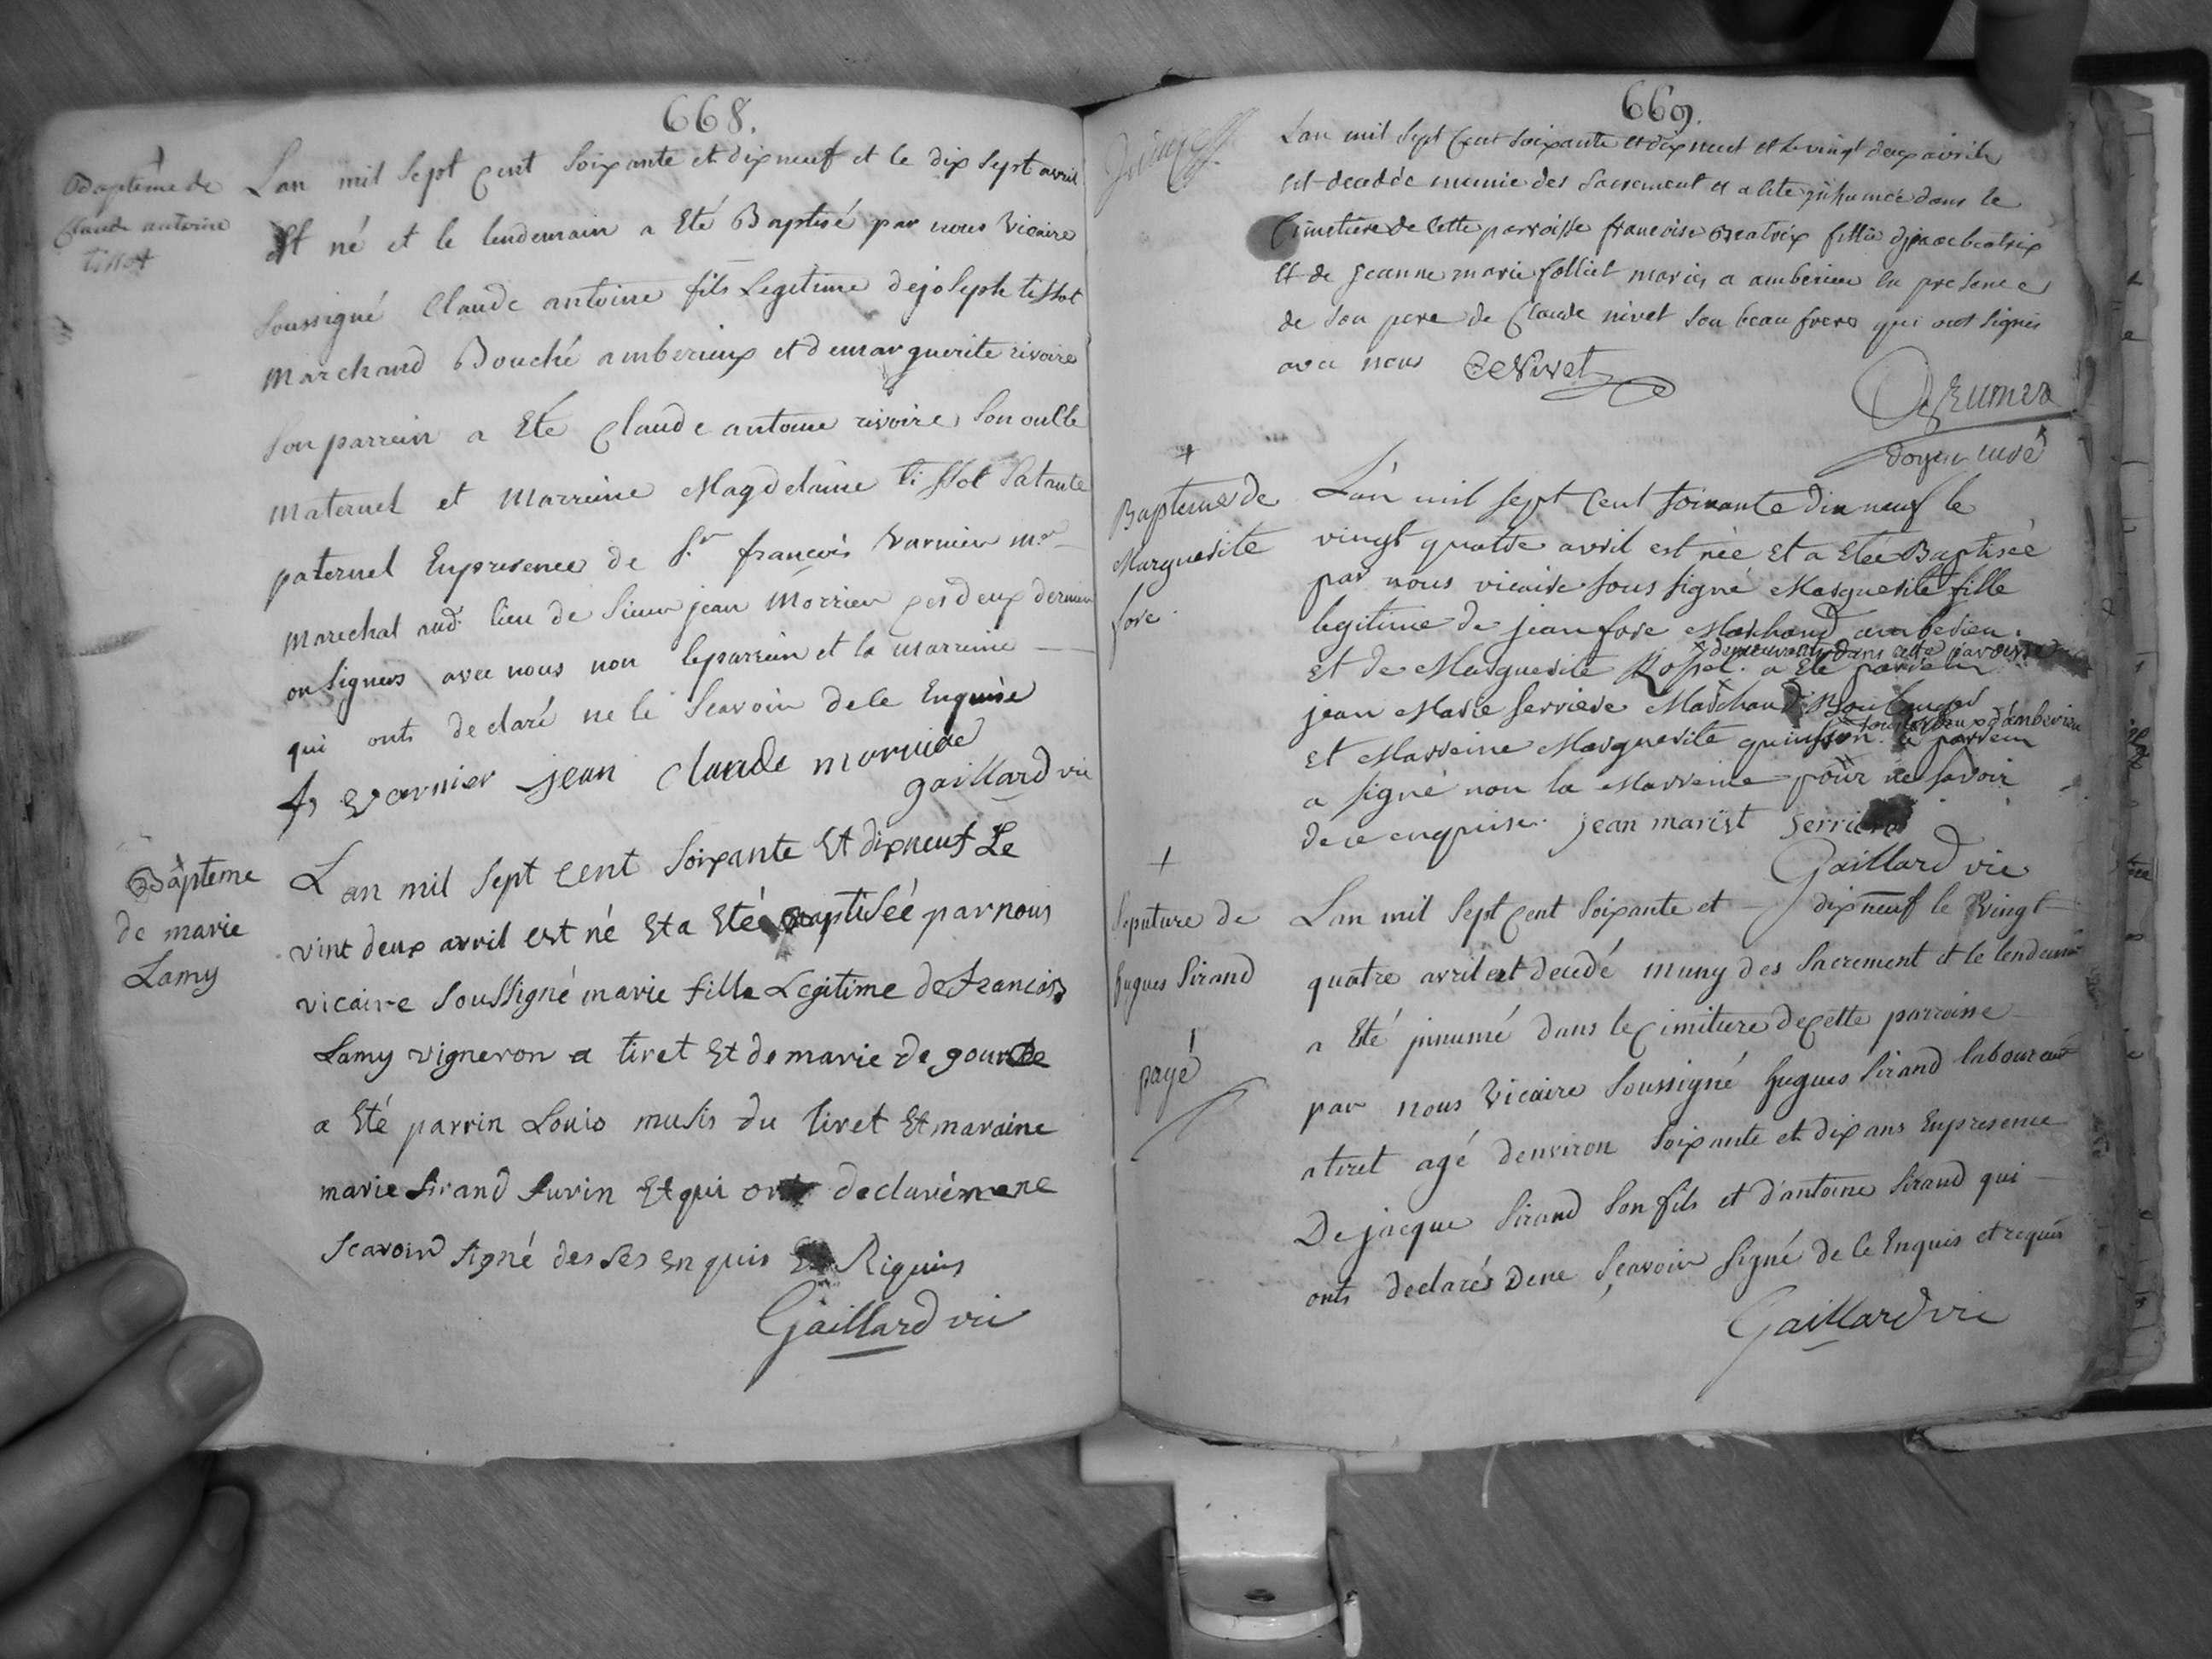 668.
Baptême de
Claude antoine
tissot
Lan mil sept cent soixante et dixneuf et le dix sept avril
Est né et le lendemain a Eté Baptisé par nous vicaire
soussigné Claude antoine fils Legitime de joseph tissot
Marchand Bouché amberieux et demarguerite rivoire
son parrein a Eté Claude antoine rivoire son oncle
Maternel et Marreine Magdelaine tissot satante
paternel Enpresence de Sr françois varnier
Marechal aud. lieu de sieur jean Morrier ces deux dernier
on signes avec nous non leparrein et la marreine
qui onts declaré ne le scavoir dece Enquise
fs varnier jean claude
gaillard vic
Bapteme
de marie
Lamy
Lan mil sept cent soixante Et dixneuf Le
vint deux avril est né Et a Eté Baptiséé parnous
vicaire soussigné marie fille Legitime de francois
Lamy vigneron a tiret Et de marie de gourde
a Eté parrin Louis musis du tiret Et maraine
marie sirand Et qui ont declaré
scavoir signé desses Enquis Et Riquis
Gaillard vic
669.
Lan mil sept Cent soixante et dixneuf et le vingt deux avril
est decedée munie des sacrement et a eté inhumée dans le
Cimetiere de Cette parroisse francoise Beatrix fille
et de jeanne marie folliet a amberieu en presence
de son pere de Claude nivet son beau frere qui ont signés
avec nous CNivet
doyen curé
Bapteme de
Marguerite
fore
L'an mil sept Cent soixante dix neuf le
vingt quatre avril est née Et a Etée Baptiséé
par nous vicaire sous signé Marguerite fille
legitime de jean fore Marchand amberieu.
demeurant dans cette paroisse
et de Marguerite Rosset. a Eté parrein
jean Marie serriere Marchand Boulanger
tous les deux d'amberieu
et Marreine Marguerite quinson. le parrein
a signé non la Marreine pour ne savoir
de ce enquise. jean mariet serriere
Gaillard vic
Sepulture de
hugues Sirand
payé
Lan mil sept cent soixante et dixneuf le vingt
quatre avril est decedé muny des sacrement et le lendemain
a Eté jnnumé dans le Cimitiere decette parroisse
par nous vicaire soussigné hugues sirand laboureur
atiret agé denviron soixante et dix ans Enpresence
De jacque sirand son fils et d'antoine sirand qui
onts declarés Dene sçavoir signé de ce Enquis et requis
Gaillard vic